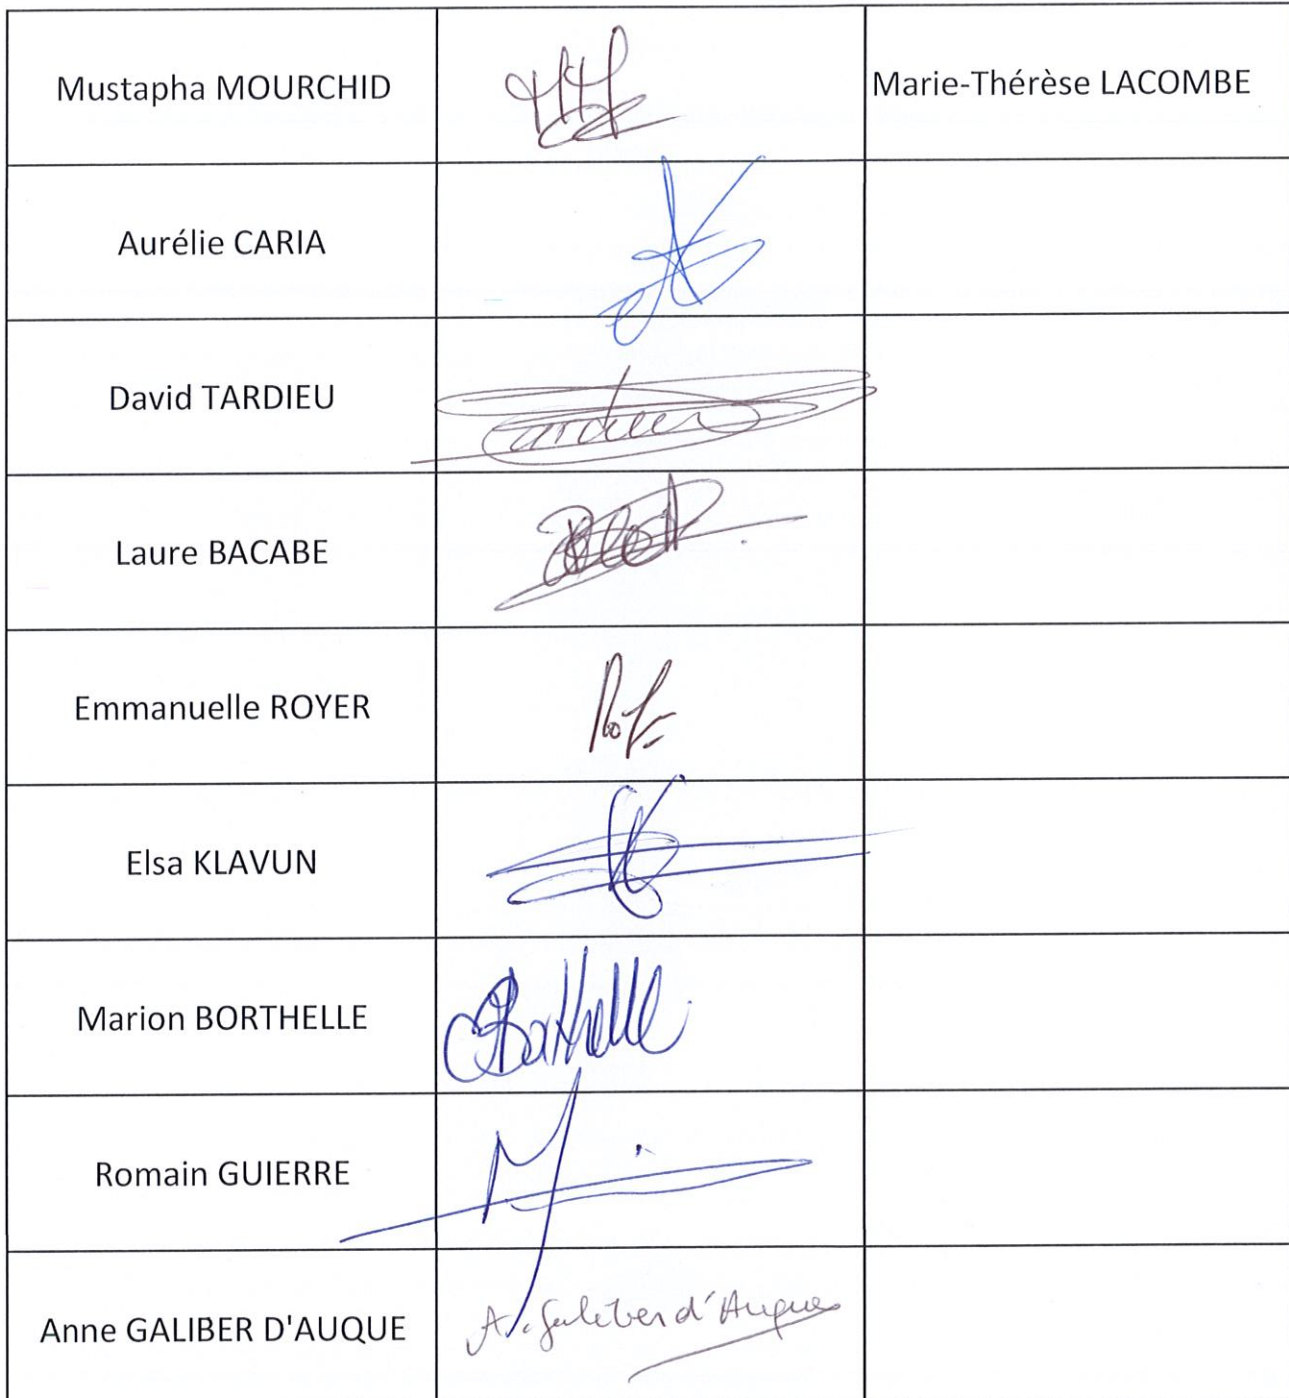 Mustapha MOURCHID
Marie-Thérèse LACOMBE
Aurélie CARIA
David TARDIEU
Tardieu
Laure BACABE
Emmanuelle ROYER
Elsa KLAVUN
Marion BORTHELLE
Borthelle
Romain GUIERRE
Anne GALIBER D'AUQUE
A. Galiber d'Auque